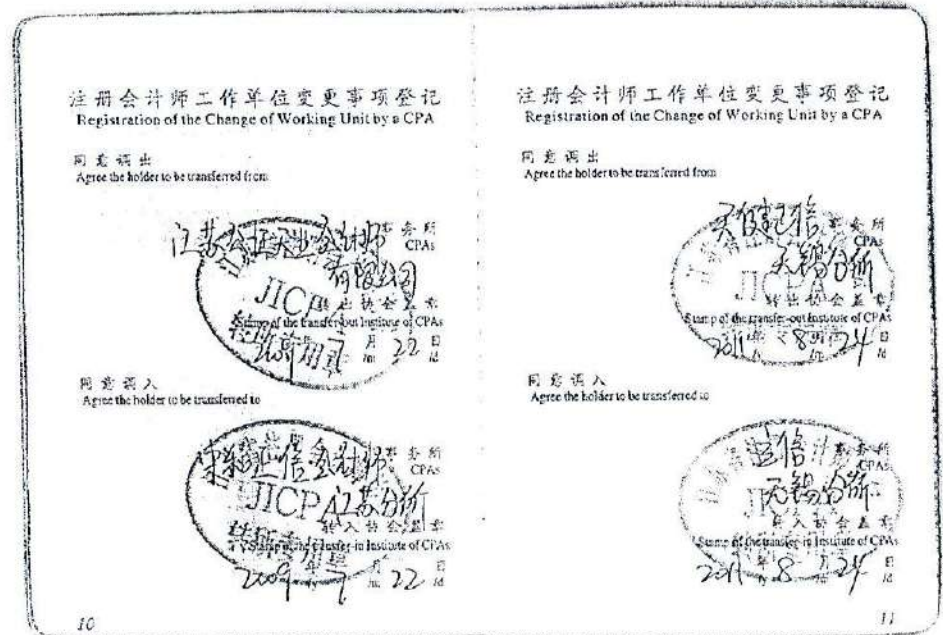 注册会计师工作单位变更事项登记
Registration of the Change of Working Unit by a CPA
同意调出
Agree the holder to be transferred from
江苏公证天业会计师事务所
CPAs
有限公司
JICPA
转出协会盖章
Stamp of the transfer-out Institute of CPAs
转所专用章
2009年7月22日
/y /m /d
同意调入
Agree the holder to be transferred to
事务所
CPAs
JICPA
江苏分所
转入协会盖章
Stamp of the transfer-in Institute of CPAs
转所专用章
2009年7月22日
/y /m /d
10
注册会计师工作单位变更事项登记
Registration of the Change of Working Unit by a CPA
同意调出
Agree the holder to be transferred from
天健正信事务所
CPAs
无锡分所
转出协会盖章
Stamp of the transfer-out Institute of CPAs
2011年8月24日
同意调入
Agree the holder to be transferred to
事务所
CPAs
无锡分所
转入协会盖章
Stamp of the transfer-in Institute of CPAs
2011年8月24日
11